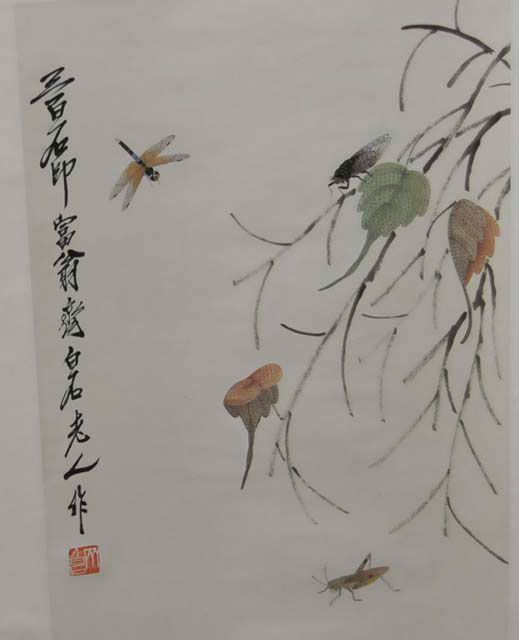 三百石印富翁齊白石老人作